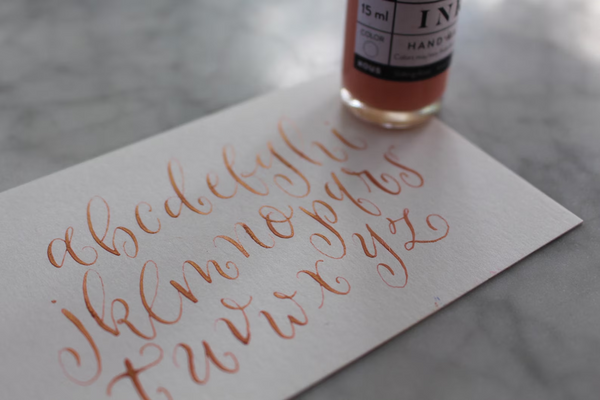 15 ml INK
COLOR HAND
abcdefghi
jklmnopqrs
tuvwxyz